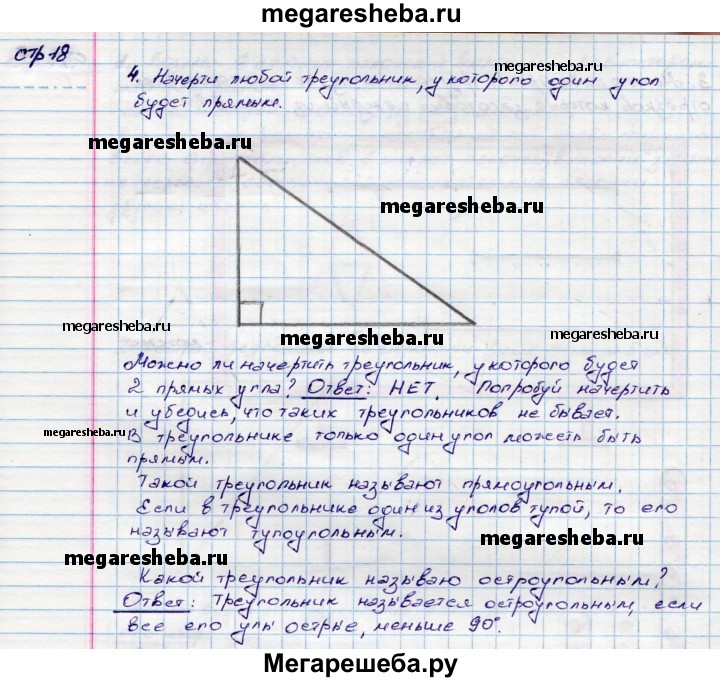 megaresheba.ru
стр 18
4. Начерти любой треугольник, у которого один угол
будет прямым.
megaresheba.ru
megaresheba.ru
megaresheba.ru
megaresheba.ru
megaresheba.ru
megaresheba.ru
megaresheba.ru
Можно ли начертить треугольник, у которого будет
2 прямых угла? Ответ: НЕТ. Попробуй начертить
и убедись, что таких треугольников не бывает.
megaresheba.ru
В треугольнике только один угол может быть
прямым.
Такой треугольник называют прямоугольным.
Если в треугольнике один из углов тупой, то его
называют тупоугольным.
megaresheba.ru
megaresheba.ru
Какой треугольник называю остроугольным?
Ответ: Треугольник называется остроугольным, если
все его углы острые, меньше 90°.
Мегарешеба.ру